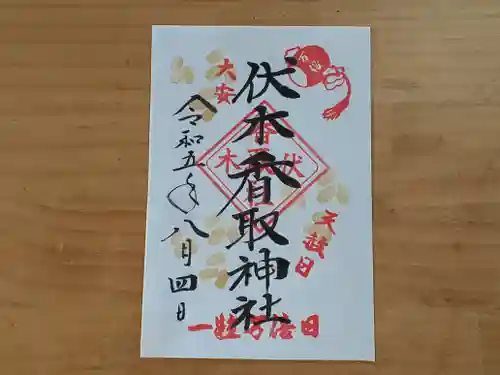 伏木香取神社
大安
天赦日
一粒万倍日
令和五年八月四日